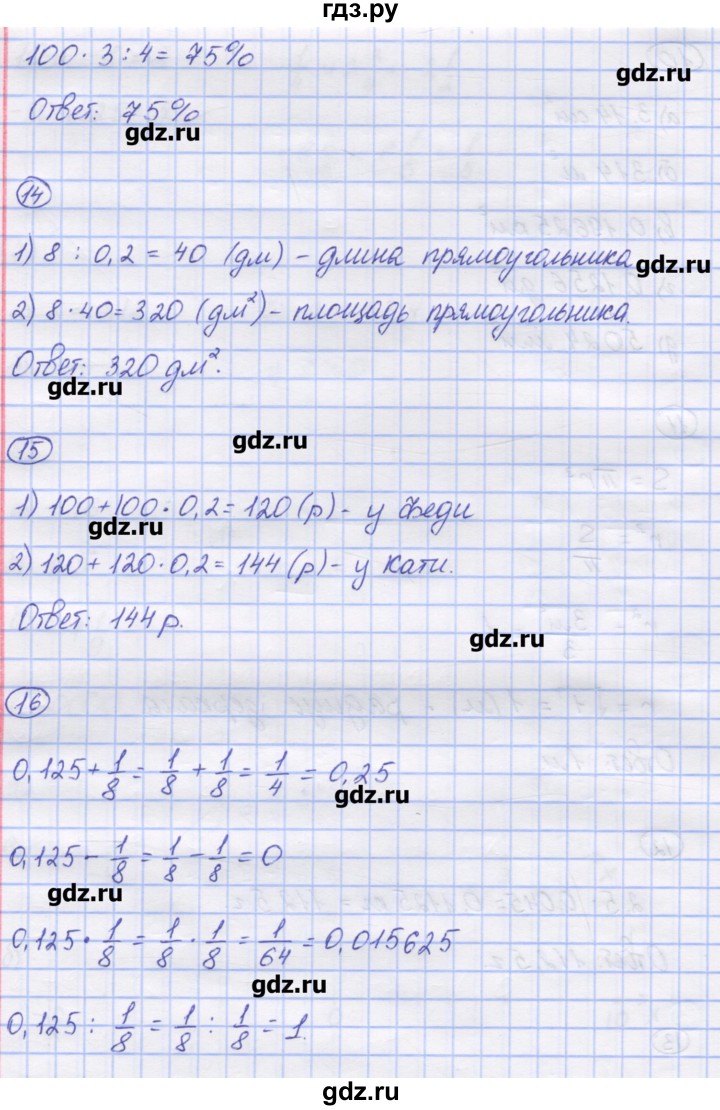 гдз.ру
100 · 3 : 4 = 75%
gdz.ru
Ответ: 75%
gdz.ru
14
1) 8 : 0,2 = 40 (дм) - длина прямоугольника
gdz.ru
2) 8 · 40 = 320 (дм²) - площадь прямоугольника.
Ответ: 320 дм².
gdz.ru
gdz.ru
15
1) 100 + 100 · 0,2 = 120 (р) - у Феди
gdz.ru
2) 120 + 120 · 0,2 = 144 (р) - у Кати.
Ответ: 144 р.
gdz.ru
16
0,125 + 1/8 = 1/8 + 1/8 = 1/4 = 0,25
gdz.ru
0,125 - 1/8 = 1/8 - 1/8 = 0
gdz.ru
0,125 · 1/8 = 1/8 · 1/8 = 1/64 = 0,015625
gdz.ru
0,125 : 1/8 = 1/8 : 1/8 = 1.
gdz.ru